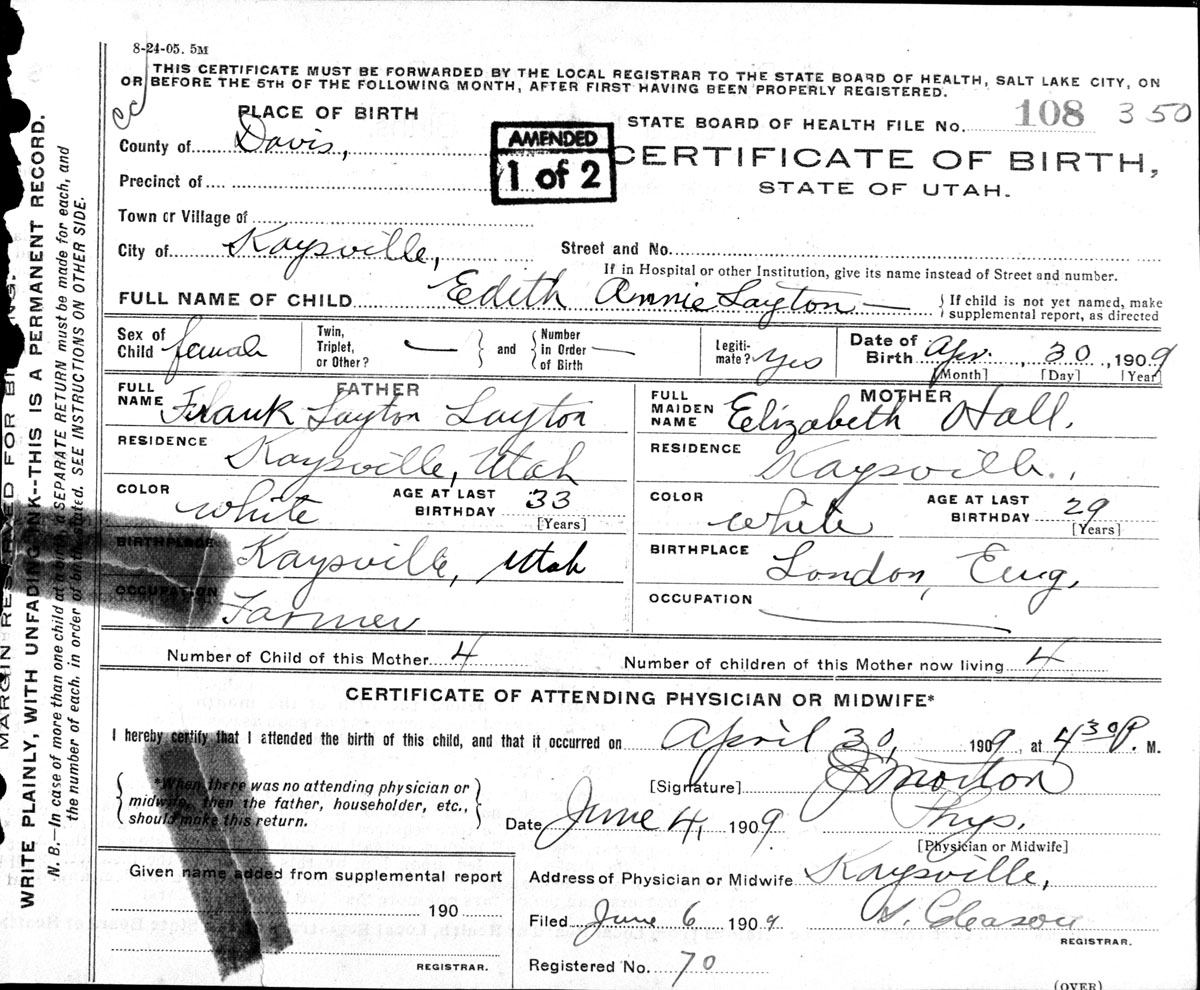 8-24-05. 5M
THIS CERTIFICATE MUST BE FORWARDED BY THE LOCAL REGISTRAR TO THE STATE BOARD OF HEALTH, SALT LAKE CITY, ON
OR BEFORE THE 5TH OF THE FOLLOWING MONTH, AFTER FIRST HAVING BEEN PROPERLY REGISTERED.
PLACE OF BIRTH
STATE BOARD OF HEALTH FILE No. 108 350
County of Davis,
AMENDED
1 of 2
CERTIFICATE OF BIRTH,
STATE OF UTAH.
Precinct of
Town or Village of
City of Kaysville,
Street and No.
If in Hospital or other Institution, give its name instead of Street and number.
FULL NAME OF CHILD Edith Annie Layton
If child is not yet named, make
supplemental report, as directed
Sex of Child female
Twin, Triplet, or Other? —
and
Number in Order of Birth —
Legiti-mate? yes
Date of Birth Apr. 30, 1909
[Month] [Day] [Year]
FATHER
FULL NAME Frank Layton Layton
RESIDENCE
Kaysville, Utah
COLOR white
AGE AT LAST BIRTHDAY 33
[Years]
BIRTHPLACE
Kaysville, Utah
OCCUPATION
Farmer
MOTHER
FULL MAIDEN NAME Elizabeth Hall.
RESIDENCE
Kaysville.,
COLOR white
AGE AT LAST BIRTHDAY 29
[Years]
BIRTHPLACE
London, Eng.
OCCUPATION
Number of Child of this Mother 4
Number of children of this Mother now living 4
CERTIFICATE OF ATTENDING PHYSICIAN OR MIDWIFE*
I hereby certify that I attended the birth of this child, and that it occurred on April 30, 1909, at 4 30 P. M.
*When there was no attending physician or
midwife, then the father, householder, etc.,
should make this return.
[Signature] J Morton
Date June 4, 1909
Phys.
[Physician or Midwife]
Given name added from supplemental report
190
REGISTRAR.
Address of Physician or Midwife Kaysville,
Filed June 6 1909
Gleason
REGISTRAR.
Registered No. 70
(OVER)
MARGIN RESERVED FOR
WRITE PLAINLY, WITH UNFADING INK--THIS IS A PERMANENT RECORD.
N. B.—In case of more than one child at a birth, a SEPARATE RETURN must be made for each, and
the number of each, in order of birth, stated. SEE INSTRUCTIONS ON OTHER SIDE.